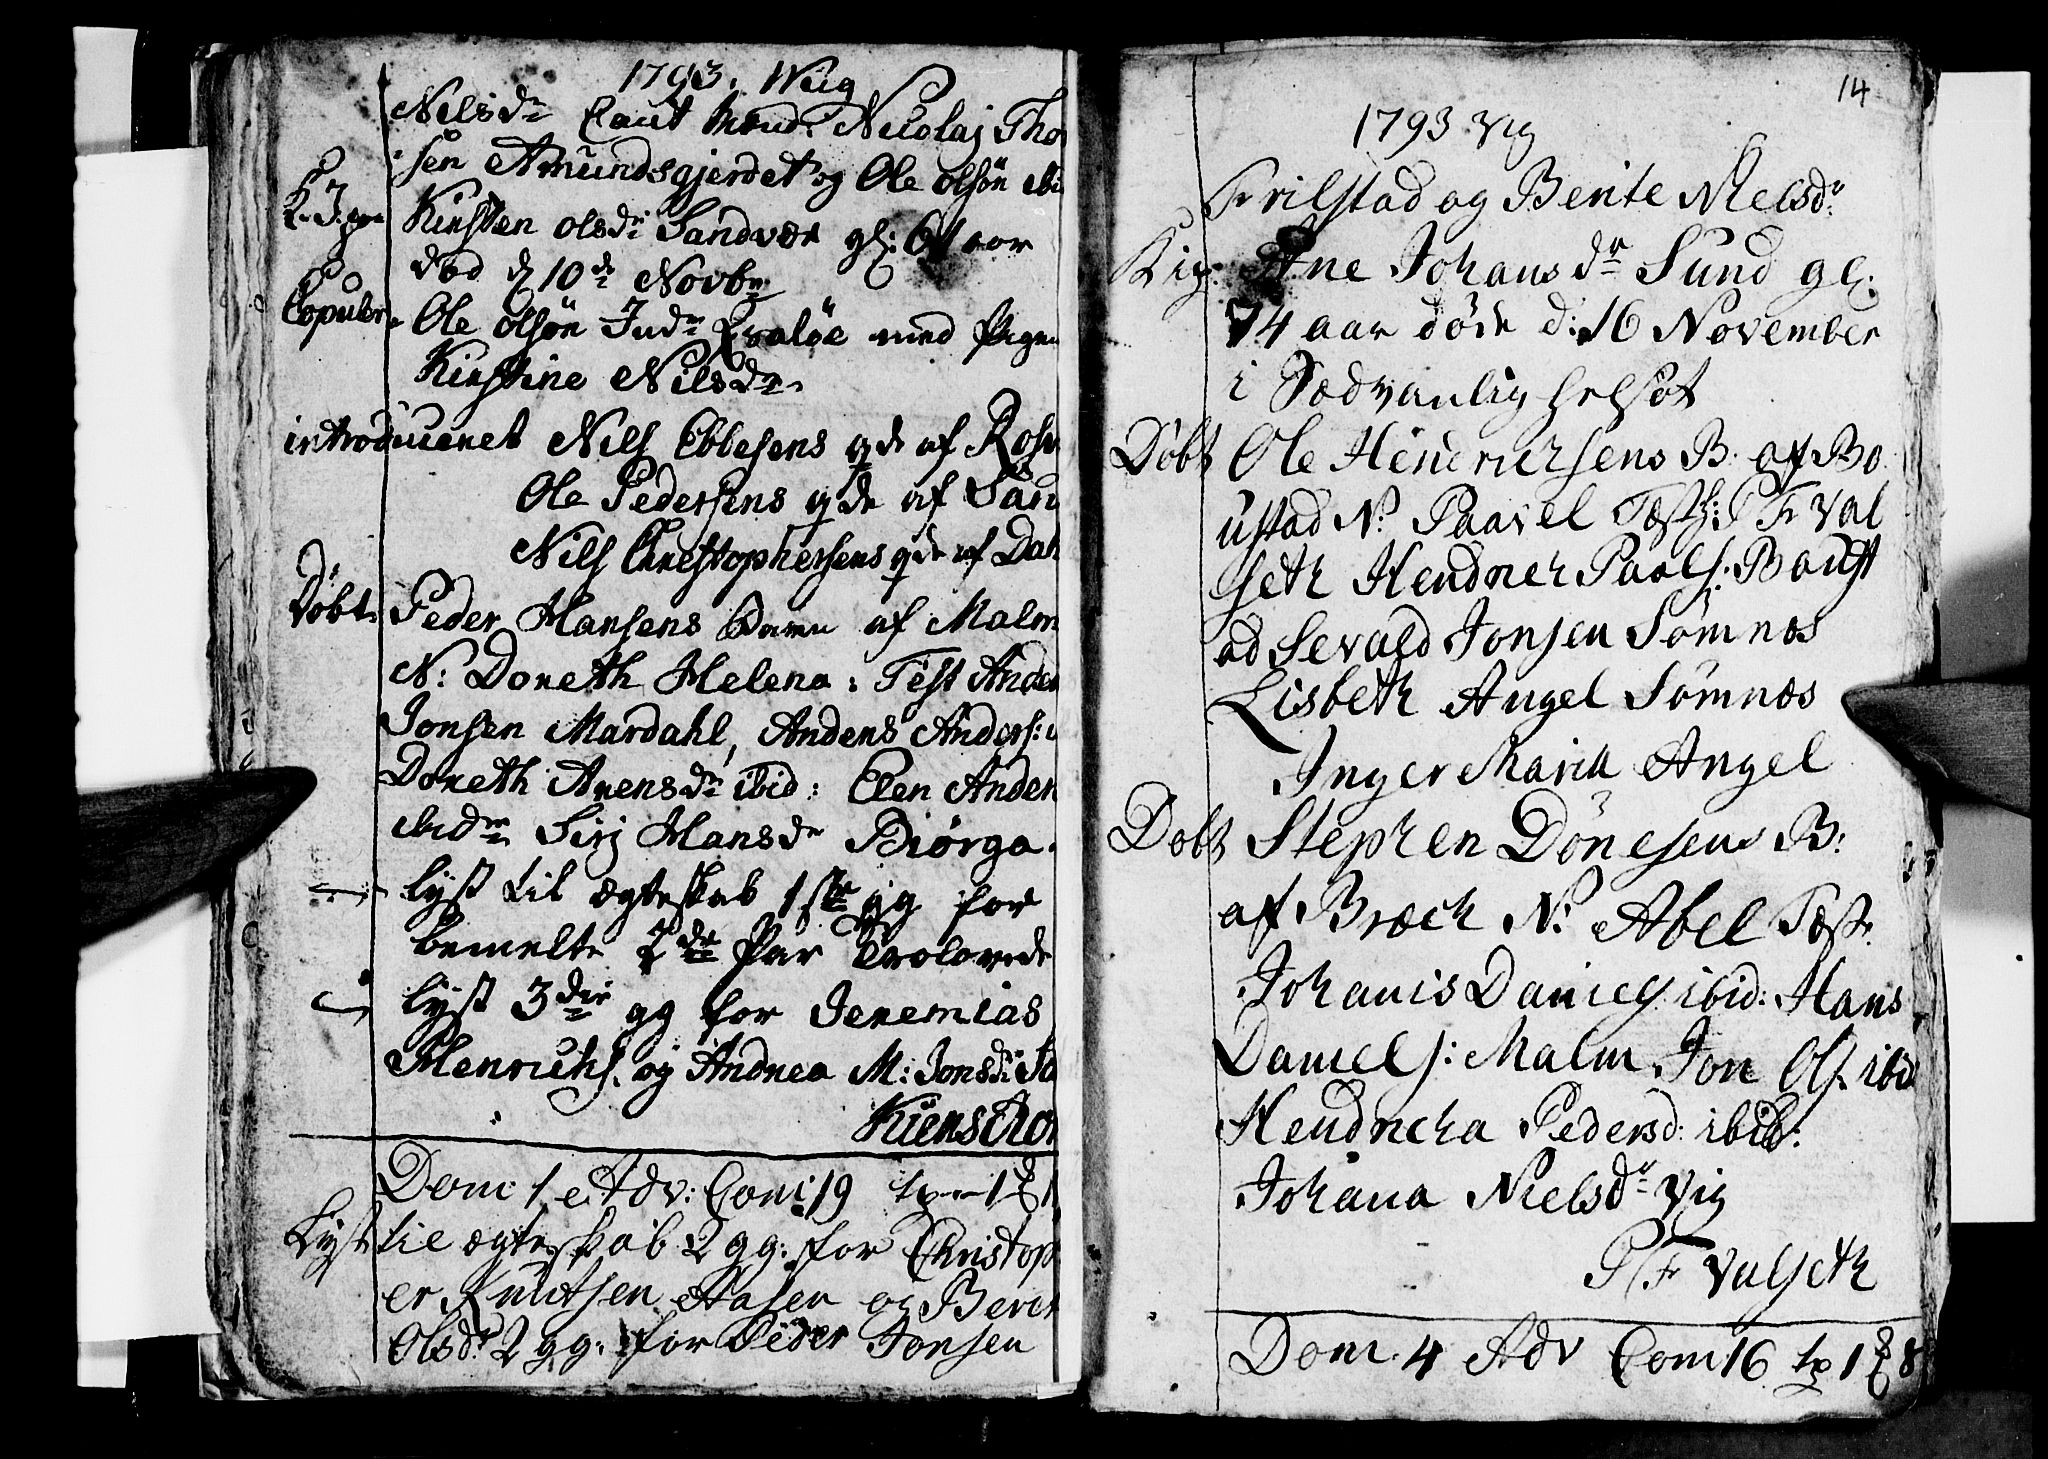 1793. Wiig
Nilsdr Caut mænd. Nicolaj Tho
sen Amundsgjerdet og Ole Olsön ibi
K. J. paa Kirsten Olsdr Sandvær gl: 61 aar
död d 10de Novbr
Copuler Ole Olsön Indr Qvalöe med Pigen
Kirstine Nilsdr
introduceret Nils Ebbesens qde af Rosv
Ole Pedersens qde af Sand
Nils Christophersens qde af Dah
Döbt Peder Hansens Barn af Malm
N: Doreth Helena. Test Ander
Jonsen Mardahl, Anders Anders:
Doreth Arensdr ibid: Elen Ander
ibidm Siri Hansdr Biörga.
lyst til ægteskab 1ste gg for
bemelte 2de Par Trolovede
lyst 3die gg for Jeremias
Henrichs. og Andrea M: Jonsdr
Dom: 1 Adv: Com: 19
Lyst til ægteskab 2 gg: for Christoph
er Knutsen Aasen og Berit
Olsdr 2 gg. for Peder Jonsen
14
1793 Vig
Trilstad og Berite Nielsdr
Ane Johansdr Sund gl:
74 aar döde d: 16 November
i Sædvanlig helsot
Döbt Ole Hendrichsens B. af Bo
ustad N. Paavel Test: P Fr Val
seth Hendrich Paals: Boust
ad Sevald Jonsen Sömnæs
Lisbeth Angel Sömnæs
Inger Maria Angel
Döbt Stephen Dönesens B:
af Bræck N: Abel Test.
Johanis Daniels ibid: Hans
Daniels: Malm Jon Ols. ibid
Hendricha Pedersd: ibid:
Johana Nielsdr Vig
P Fr Valseth
Dom. 4 Adv Com 16